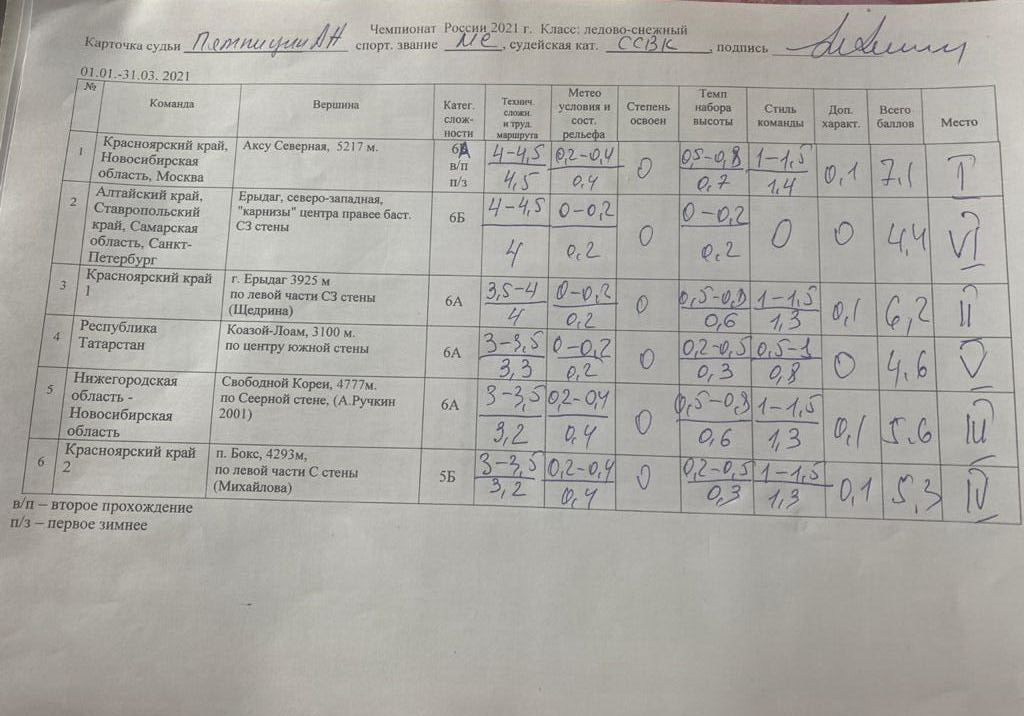 Чемпионат России 2021 г. Класс: ледово-снежный
Карточка судьи АН спорт. звание МС, судейская кат. ССВК, подпись
01.01.-31.03. 2021
№ Команда Вершина Катег. слож- ности Технич. сложн. и труд. маршрута Метео условия и сост. рельефа Степень освоен Темп набора высоты Стиль команды Доп. характ. Всего баллов Место
1 Красноярский край, Аксу Северная, 5217 м. 6А 4-4,5 0,2-0,4 0 0,5-0,8 1-1,5 0,1 7,1 I
Новосибирская в/п 4,5 0,4 0,7 1,4
область, Москва п/з
2 Алтайский край, Ерыдаг, северо-западная, 6Б 4-4,5 0-0,2 0 0-0,2 0 0 4,4 VI
Ставропольский "карнизы" центра правее баст. 4 0,2 0,2
край, Самарская СЗ стены
область, Санкт-
Петербург
3 Красноярский край г. Ерыдаг 3925 м 6А 3,5-4 0-0,2 0 0,5-0,8 1-1,5 0,1 6,2 II
1 по левой части СЗ стены 4 0,2 0,6 1,3
(Щедрина)
4 Республика Коазой-Лоам, 3100 м. 6А 3-3,5 0-0,2 0 0,2-0,5 0,5-1 0 4,6 V
Татарстан по центру южной стены 3,3 0,2 0,3 0,8
5 Нижегородская Свободной Кореи, 4777м. 6А 3-3,5 0,2-0,4 0 0,5-0,8 1-1,5 0,1 5,6 III
область - по Сеерной стене, (А.Ручкин 3,2 0,4 0,6 1,3
Новосибирская 2001)
область
6 Красноярский край п. Бокс, 4293м, 5Б 3-3,5 0,2-0,4 0 0,2-0,5 1-1,5 0,1 5,3 IV
2 по левой части С стены 3,2 0,4 0,3 1,3
(Михайлова)
в/п – второе прохождение
п/з – первое зимнее